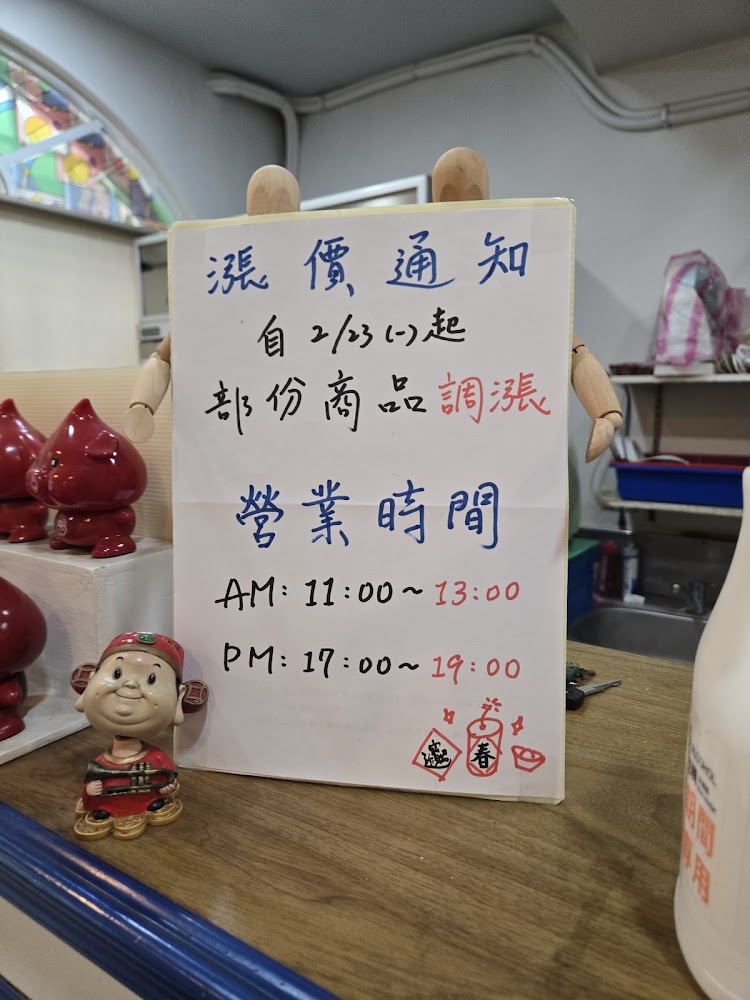 漲價通知
自 2/23 (一) 起
部份商品調漲
營業時間
AM: 11:00~13:00
PM: 17:00~19:00
春
期間
專用